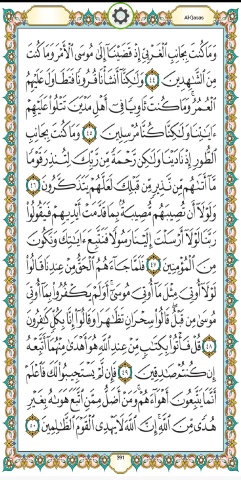 Al-Qasas
وَمَا كُنتَ بِجَانِبِ ٱلْغَرْبِىِّ إِذْ قَضَيْنَآ إِلَىٰ مُوسَى ٱلْأَمْرَ وَمَا كُنتَ
مِنَ ٱلشَّـٰهِدِينَ ٤٤ وَلَـٰكِنَّآ أَنشَأْنَا قُرُونًا فَتَطَاوَلَ عَلَيْهِمُ
ٱلْعُمُرُ ۚ وَمَا كُنتَ ثَاوِيًا فِىٓ أَهْلِ مَدْيَنَ تَتْلُوا۟ عَلَيْهِمْ
ءَايَـٰتِنَا وَلَـٰكِنَّا كُنَّا مُرْسِلِينَ ٤٥ وَمَا كُنتَ بِجَانِبِ
ٱلطُّورِ إِذْ نَادَيْنَا وَلَـٰكِن رَّحْمَةً مِّن رَّبِّكَ لِتُنذِرَ قَوْمًا
مَّآ أَتَىٰهُم مِّن نَّذِيرٍ مِّن قَبْلِكَ لَعَلَّهُمْ يَتَذَكَّرُونَ ٤٦
وَلَوْلَآ أَن تُصِيبَهُم مُّصِيبَةٌۢ بِمَا قَدَّمَتْ أَيْدِيهِمْ فَيَقُولُوا۟
رَبَّنَا لَوْلَآ أَرْسَلْتَ إِلَيْنَا رَسُولًا فَنَتَّبِعَ ءَايَـٰتِكَ وَنَكُونَ
مِنَ ٱلْمُؤْمِنِينَ ٤٧ فَلَمَّا جَآءَهُمُ ٱلْحَقُّ مِنْ عِندِنَا قَالُوا۟
لَوْلَآ أُوتِىَ مِثْلَ مَآ أُوتِىَ مُوسَىٰٓ ۚ أَوَلَمْ يَكْفُرُوا۟ بِمَآ أُوتِىَ
مُوسَىٰ مِن قَبْلُ ۖ قَالُوا۟ سِحْرَانِ تَظَـٰهَرَا وَقَالُوٓا۟ إِنَّا بِكُلٍّ كَـٰفِرُونَ
٤٨ قُلْ فَأْتُوا۟ بِكِتَـٰبٍ مِّنْ عِندِ ٱللَّهِ هُوَ أَهْدَىٰ مِنْهُمَآ أَتَّبِعْهُ
إِن كُنتُمْ صَـٰدِقِينَ ٤٩ فَإِن لَّمْ يَسْتَجِيبُوا۟ لَكَ فَٱعْلَمْ
أَنَّمَا يَتَّبِعُونَ أَهْوَآءَهُمْ ۚ وَمَنْ أَضَلُّ مِمَّنِ ٱتَّبَعَ هَوَىٰهُ بِغَيْرِ
هُدًى مِّنَ ٱللَّهِ ۚ إِنَّ ٱللَّهَ لَا يَهْدِى ٱلْقَوْمَ ٱلظَّـٰلِمِينَ ٥٠
391